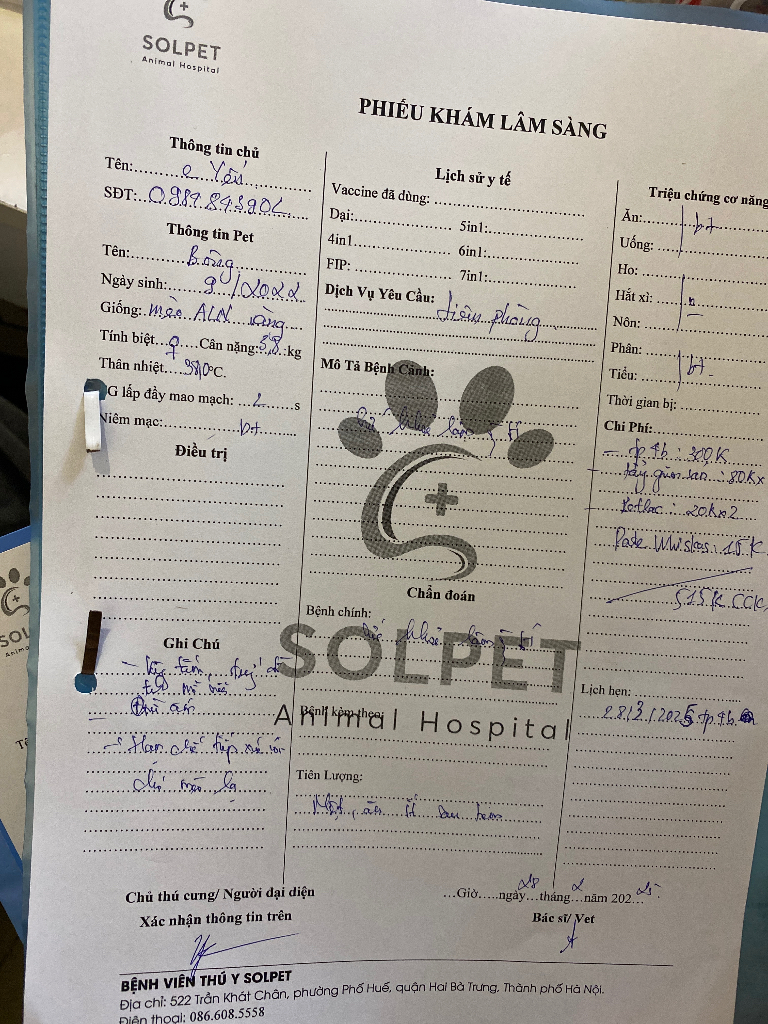 SOLPET
Animal Hospital
PHIẾU KHÁM LÂM SÀNG
Thông tin chủ
Tên: c Yến
SĐT:
Thông tin Pet
Tên: Bông
Ngày sinh: 9/2022
Giống: mèo ALN vàng
Tính biệt ♀ Cân nặng: 3,8 kg
Thân nhiệt °C.
TG lấp đầy mao mạch: 2 s
Niêm mạc: bt
Điều trị
Ghi Chú
- Hạn chế tiếp xúc với
chó mèo lạ
Lịch sử y tế
Vaccine đã dùng:
Dại: 5in1:
4in1 6in1:
FIP: 7in1:
Dịch Vụ Yêu Cầu: tiêm phòng
Mô Tả Bệnh Cảnh:
Chẩn đoán
Bệnh chính:
SOLPET
Animal Hospital
Bệnh kèm theo:
Tiên Lượng:
Mệt, ăn ít sau tiêm
Triệu chứng cơ năng
Ăn: bt
Uống:
Ho:
Hắt xì: n
Nôn:
Phân: bt
Tiểu:
Thời gian bị:
Chi Phí:
- tp 4b: 300K
- tẩy giun sán: 80K x
- : 20K x 2
: 15K
515K CCK
Lịch hẹn:
28/3/2025 tp 4b
Chủ thú cưng/ Người đại diện
Xác nhận thông tin trên
...Giờ.....ngày 28 tháng 2 năm 2025
Bác sĩ/ Vet
BỆNH VIỆN THÚ Y SOLPET
Địa chỉ: 522 Trần Khát Chân, phường Phố Huế, quận Hai Bà Trưng, Thành phố Hà Nội.
Điện thoại: 086.608.5558